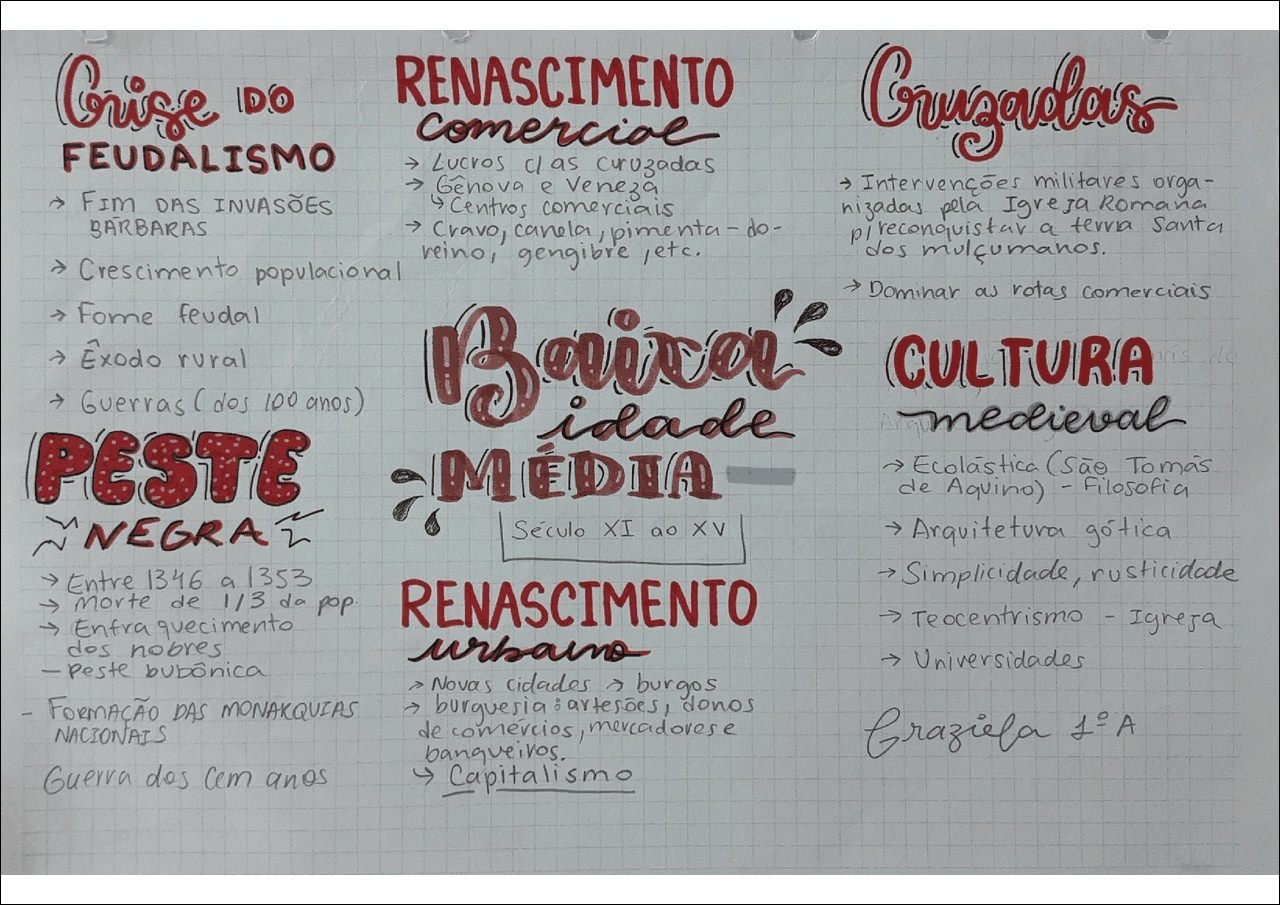 Crise DO
FEUDALISMO
→ FIM DAS INVASÕES
BÁRBARAS
→ Crescimento populacional
→ Fome feudal
→ Êxodo rural
→ Guerras (dos 100 anos)
PESTE
NEGRA
→ Entre 1346 a 1353
→ morte de 1/3 da pop.
→ Enfraquecimento
dos nobres
– Peste bubônica
– FORMAÇÃO DAS MONARQUIAS
NACIONAIS
Guerra dos Cem anos
RENASCIMENTO
comercial
→ Lucros c/ as curuzadas
→ Gênova e Veneza
↳ Centros comerciais
→ Cravo, canela, pimenta-do-
reino, gengibre, etc.
Baixa
idade
MÉDIA
Século XI ao XV
RENASCIMENTO
urbano
→ Novas cidades → burgos
→ burguesia: artesões, donos
de comércios, mercadores e
banqueiros.
↳ Capitalismo
Cruzadas
→ Intervenções militares orga-
nizadas pela Igreja Romana
p/ reconquistar a terra Santa
dos mulçumanos.
→ Dominar as rotas comerciais
CULTURA
medieval
→ Ecolástica (São Tomás
de Aquino) - Filosofia
→ Arquitetura gótica
→ Simplicidade, rusticidade
→ Teocentrismo - Igreja
→ Universidades
Graziela 1º A